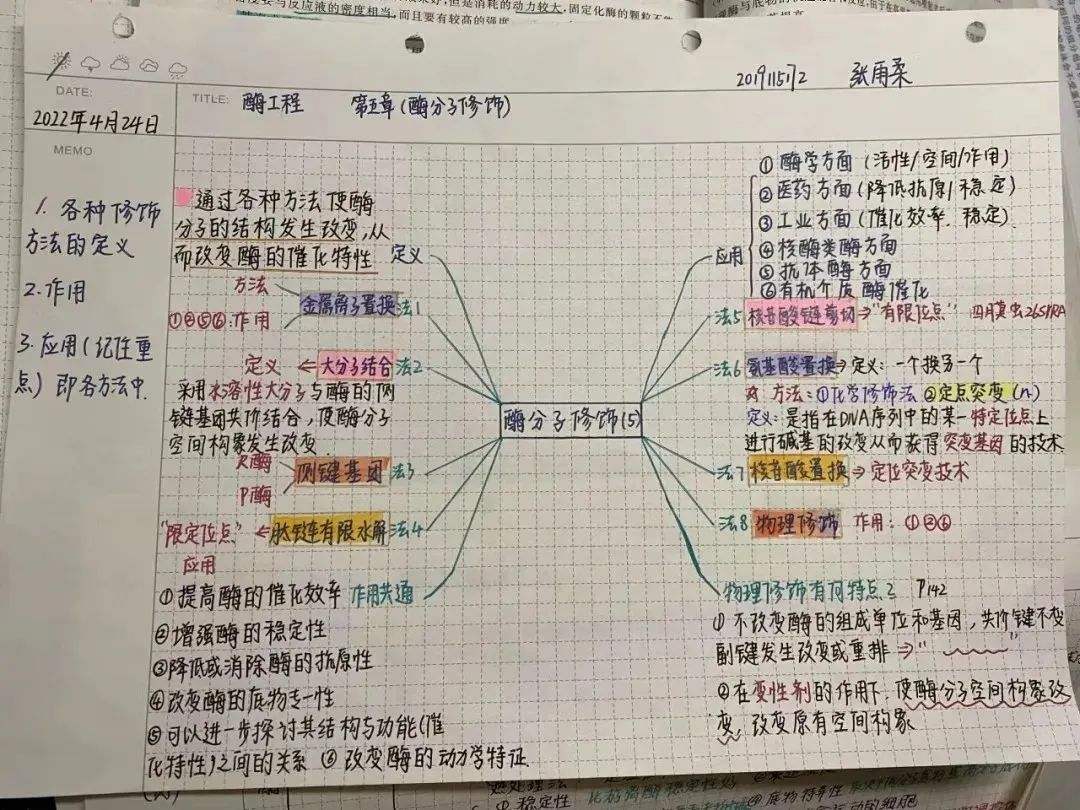 要与反应液的密度相当,而且要有较高的强度
但是消耗的动力较大,固定化酶的颗粒不
20191151172 张雨柔
DATE:
2022年4月24日
TITLE: 酶工程 第五章(酶分子修饰)
MEMO
1. 各种修饰
方法的定义
2.作用
3.应用(纪性重
点) 即各方法中.
通过各种方法使酶
分子的结构发生改变,从
而改变酶的催化特性 定义
方法
金属离子置换 法1
①④⑤⑥:作用
定义 ← 大分子结合 法2
采用水溶性大分子与酶的侧
键基团共价结合,使酶分子
空间构象发生改变.
R酶
侧键基团 法3
P酶
"限定位点" ← 肽链有限水解 法4
应用
①提高酶的催化效率 作用共通
②增强酶的稳定性
③降低或消除酶的抗原性
④改变酶的底物专一性
⑤可以进一步探讨其结构与功能(催
化特性)之间的关系 ⑥ 改变酶的动力学特征
酶分子修饰(5)
① 酶学方面 (活性/空间/作用)
② 医药方面(降低抗原/稳定)
③ 工业方面(催化效率.稳定)
应用
④核酶类酶方面
⑤抗体酶方面
⑥有机介质酶催化
法5 核苷酸链剪切 ⇒"有限位点" 四膜虫26SrRNA
法6 氨基酸置换 ⇒ 定义: 一个换另一个
方法: ①化学修饰法 ②定点突变(n)
定义: 是指在DNA序列中的某一特定位点上
进行碱基的改变从而获得突变基因的技术
法7 核苷酸置换 ⇒ 定位突变技术
法8 物理修饰 作用: ①②⑥
物理修饰有何特点? P142
① 不改变酶的组成单位和基因,共价键不变
副键发生改变或重排 ⇒" "
②在变性剂的作用下,使酶分子空间构象改
变,改变原有空间构象